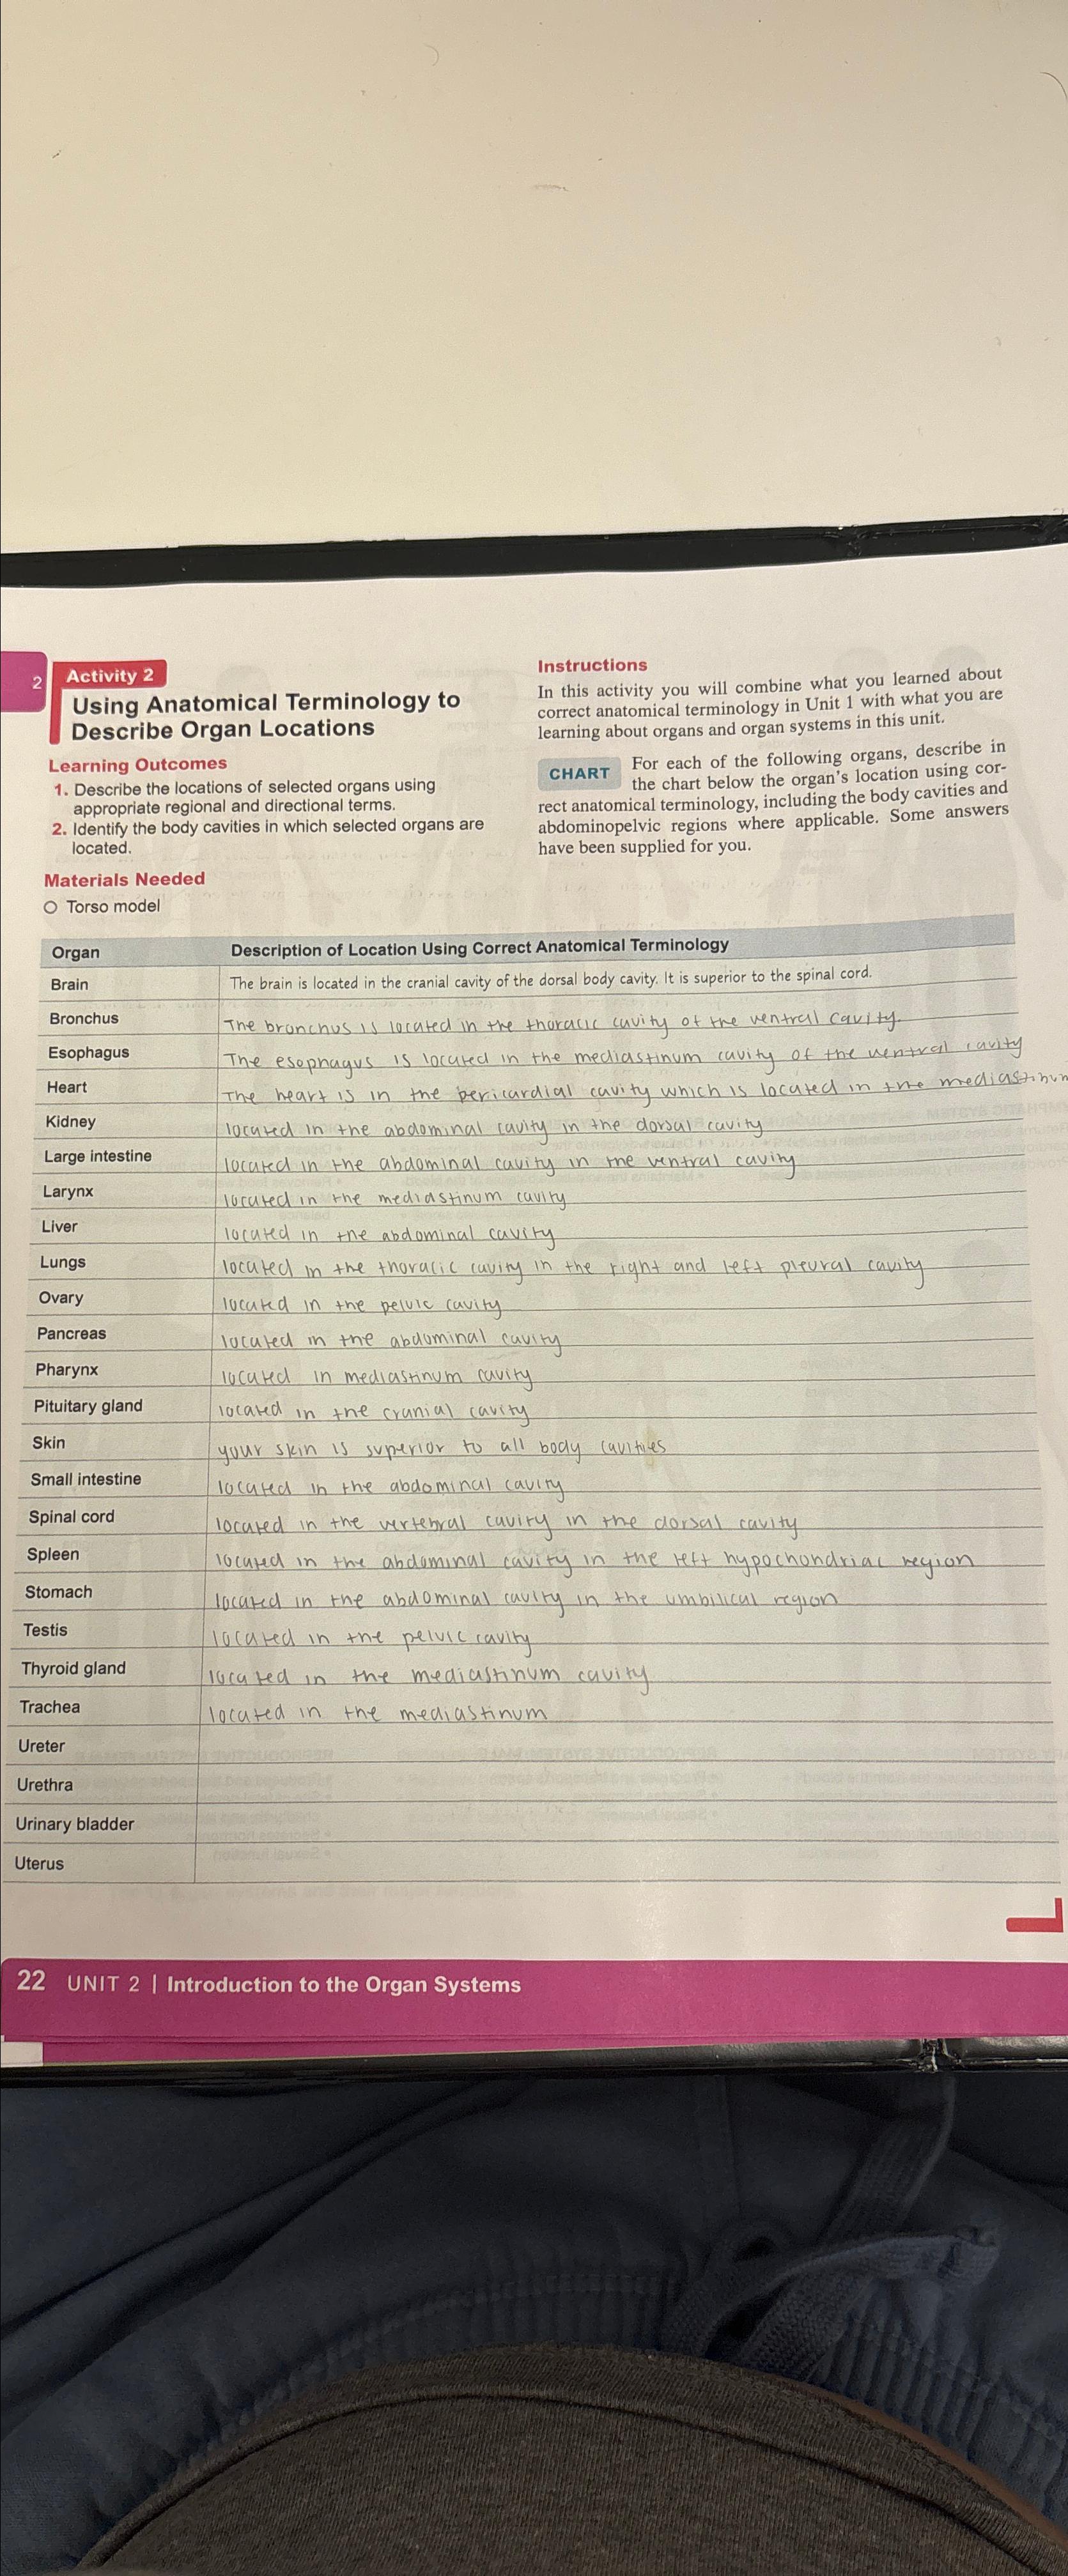 2
Activity 2
Using Anatomical Terminology to
Describe Organ Locations
Learning Outcomes
1. Describe the locations of selected organs using
appropriate regional and directional terms.
2. Identify the body cavities in which selected organs are
located.
Materials Needed
Torso model
Instructions
In this activity you will combine what you learned about
correct anatomical terminology in Unit 1 with what you are
learning about organs and organ systems in this unit.
CHART For each of the following organs, describe in
the chart below the organ's location using cor-
rect anatomical terminology, including the body cavities and
abdominopelvic regions where applicable. Some answers
have been supplied for you.
Organ Description of Location Using Correct Anatomical Terminology
Brain The brain is located in the cranial cavity of the dorsal body cavity. It is superior to the spinal cord.
Bronchus The bronchus is located in the thoracic cavity of the ventral cavity.
Esophagus The esophagus is located in the mediastinum cavity of the ventral cavity
Heart The heart is in the pericardial cavity which is located in the mediastinum
Kidney located in the abdominal cavity in the dorsal cavity
Large intestine located in the abdominal cavity in the ventral cavity
Larynx located in the mediastinum cavity
Liver located in the abdominal cavity
Lungs located in the thoracic cavity in the right and left pleural cavity
Ovary located in the pelvic cavity
Pancreas located in the abdominal cavity
Pharynx located in mediastinum cavity
Pituitary gland located in the cranial cavity
Skin your skin is superior to all body cavities
Small intestine located in the abdominal cavity
Spinal cord located in the vertebral cavity in the dorsal cavity
Spleen located in the abdominal cavity in the left hypochondriac region
Stomach located in the abdominal cavity in the umbilical region
Testis located in the pelvic cavity
Thyroid gland located in the mediastinum cavity
Trachea located in the mediastinum
Ureter
Urethra
Urinary bladder
Uterus
22 UNIT 2 | Introduction to the Organ Systems